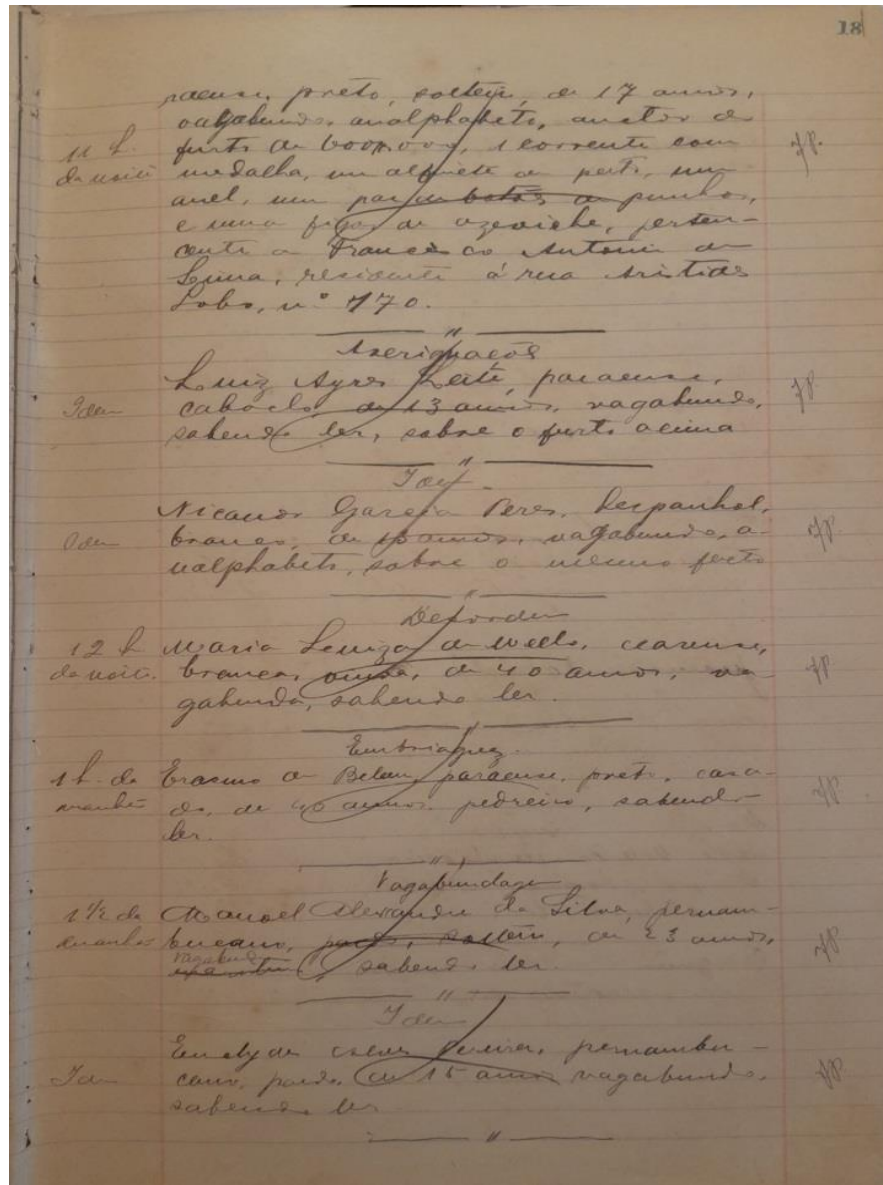 18
raense, preto, solteiro, de 17 annos,
vagabundo, analphabeto, auctor do
11 h. furto de 600$000, 1 corrente com
da noite medalha, um alfinete de peito, um
anel, um par de botões de punhos,
e uma figa de azeviche, perten-
cente a Francisco Antonio de
Lima, residente á rua Aristides
Lobo, nº 170.
Averiguações
Luiz Ayres Leite, paraense,
Idem caboclo, de 13 annos, vagabundo,
sabendo ler, sobre o furto acima
Idem
Nicanor Garcia Peres, hespanhol,
Idem branco, de annos, vagabundo, a-
nalphabeto, sobre o mesmo furto
Desordem
12 h Maria Luiza de Mello, cearense,
da noite. branca, viuva, de 40 annos, va-
gabunda, sabendo ler.
Embriaguez.
1 h. da Erasmo de Belem, paraense, preto, casa-
manhã do, de annos, pedreiro, sabendo
ler.
Vagabundagem
1 1/2 da Manoel Alexandre da Silva, pernam-
manhã bucano, pardo, solteiro, de 23 annos,
vagabundo
sabendo ler.
Idem
Euclydes Pereira, pernambu-
Idem cano, pardo, de 15 annos vagabundo,
sabendo ler.